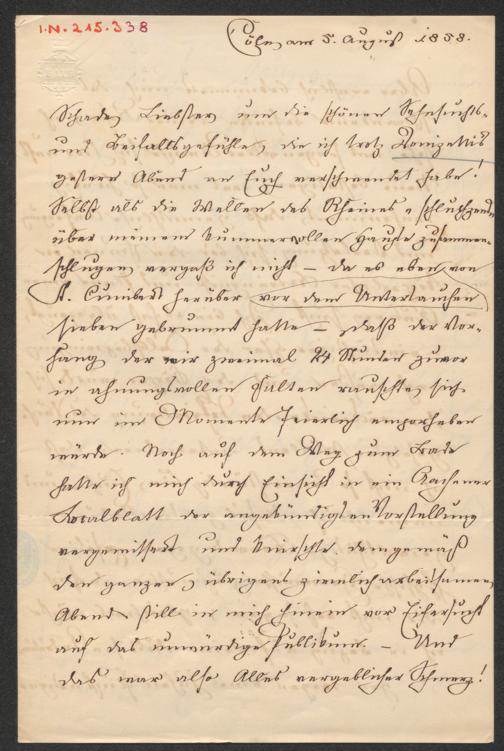 I.N. 215.338
Cöln am 5. August 1858.
Schade, Liebster, um die schönen Sehnsuchts-
und Beifallsgefühle, die ich trotz Donizettis
gestern Abend an Euch verschwendet habe!
Selbst als die Wellen des Rheines schluchzend
über meinem kummervollen Haupte zusammen-
schlugen, vergaß ich nicht – da es eben von
St. Cunibert herüber vor dem Untertauchen
sieben gebrummt hatte – daß der Vor-
hang, der mir zweimal 24 Stunden zuvor
in ahnungsvollen Falten rauschte, sich
nun im Momente feierlich emporheben
würde. Noch auf dem Weg zum Bade
hatte ich mich durch Einsicht in ein Aachener
Localblatt der angekündigten Vorstellung
vergewissert und knirschte demgemäß
den ganzen, übrigens ziemlich arbeitsamen,
Abend still in mich hinein vor Eifersucht
auf das unwürdige Publikum. – Und
das war also Alles vergeblicher Schmerz!